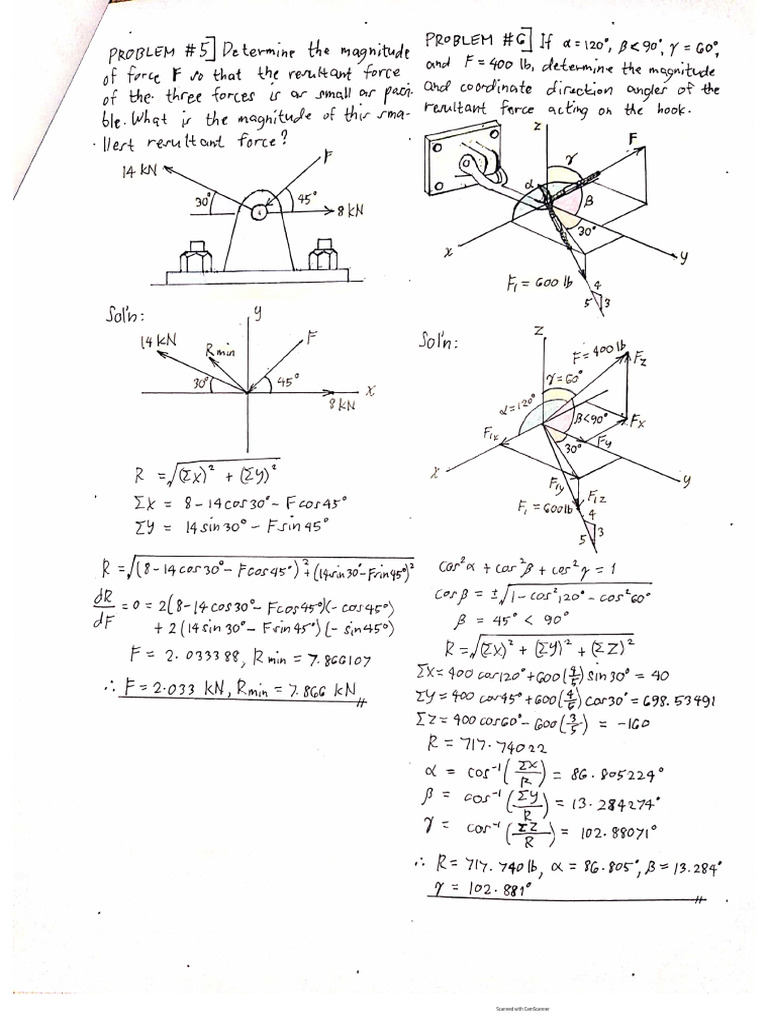 PROBLEM #5] Determine the magnitude
of force F so that the resultant force
of the three forces is as small as possi-
ble. What is the magnitude of this sma-
llest resultant force?
14 kN
F
30°
45°
8 kN
Sol'n:
y
14 kN
Rmin
F
30°
45°
x
8 kN
R = √(Σx)² + (Σy)²
Σx = 8 - 14 cos 30° - F cos 45°
Σy = 14 sin 30° - F sin 45°
R = √(8 - 14 cos 30° - F cos 45°)² + (14 sin 30° - F sin 45°)²
dR/dF = 0 = 2(8 - 14 cos 30° - F cos 45°)(- cos 45°)
+ 2(14 sin 30° - F sin 45°)(- sin 45°)
F = 2.033388, Rmin = 7.866107
∴ F = 2.033 kN, Rmin = 7.866 kN
PROBLEM #6] If α = 120°, β < 90°, γ = 60°,
and F = 400 lb, determine the magnitude
and coordinate direction angles of the
resultant force acting on the hook.
z
F
α
γ
β
30°
x
y
F₁ = 600 lb
4
5
3
Sol'n:
z
F = 400 lb
Fz
γ = 60°
α = 120°
β < 90°
Fx
F₁x
Fy
30°
x
F₁y
y
F₁z
F₁ = 600 lb
4
5
3
cos²α + cos²β + cos²γ = 1
cos β = ±√1 - cos²120° - cos²60°
β = 45° < 90°
R = √(Σx)² + (Σy)² + (Σz)²
Σx = 400 cos 120° + 600 (4/5) sin 30° = 40
Σy = 400 cos 45° + 600 (4/5) cos 30° = 698.53491
Σz = 400 cos 60° - 600 (3/5) = -160
R = 717.74022
α = cos⁻¹ (Σx/R) = 86.805224°
β = cos⁻¹ (Σy/R) = 13.284274°
γ = cos⁻¹ (Σz/R) = 102.88071°
∴ R = 717.740 lb, α = 86.805°, β = 13.284°
γ = 102.881°
Scanned with CamScanner